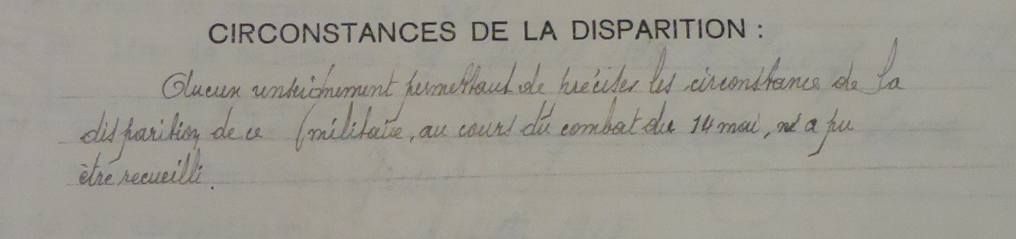 CIRCONSTANCES DE LA DISPARITION :
Aucun renseignement permettant de préciser les circonstance de la
disparition de ce (militaire, au cours du combat du 14 mai, n'a pu
être recueilli.